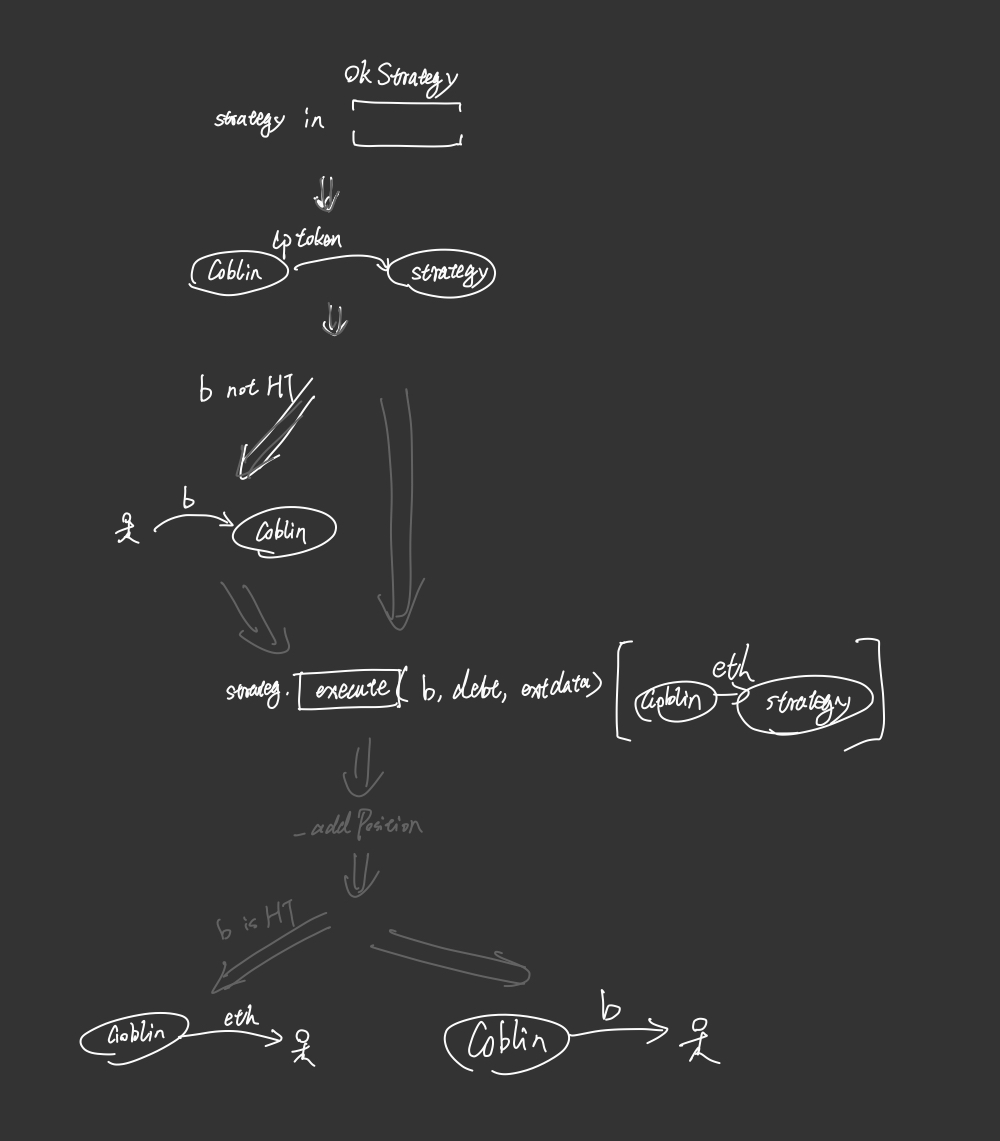 Ok Strategy
strategy in
Lp token
Goblin
strategy
b not HT
b
Goblin
strateg. execute( b, debt, extdata)
eth
Goblin
strategy
_addPosition
b is HT
Goblin
eth
Goblin
b